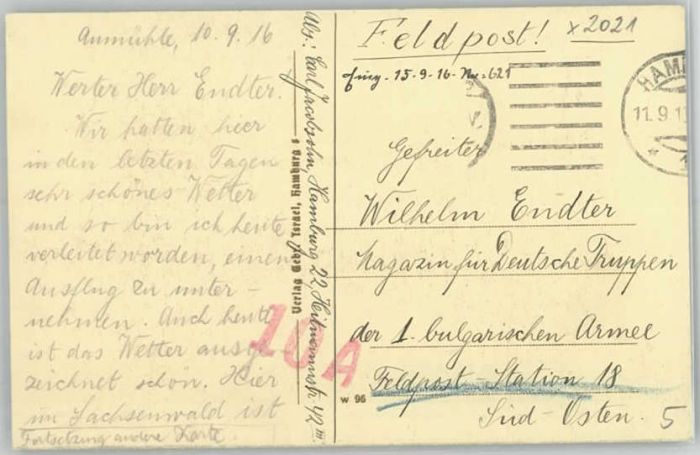 Aumühle, 10.9.16
Werter Herr Endter.
Wir hatten hier
in den letzten Tagen
sehr schönes Wetter
und so bin ich heute
verleitet worden, einen
Ausflug zu unter-
nehmen. Auch heute
ist das Wetter ausge
zeichnet schön. Hier
im Sachsenwald ist
Fortsetzung andere Karte.
Abs: Carl Jacobsohn, Hamburg 22, 42 III
Verlag Gebr. Israel, Hamburg 8
10A
Feldpost!
x 2021
15-9-16- No: 621
HAM
11.9.1
Gefreiter
Wilhelm Endter
Magazin für Deutsche Truppen
der 1. bulgarischen Armee
Feldpost-Station 18
Süd-Osten.
5
W 96